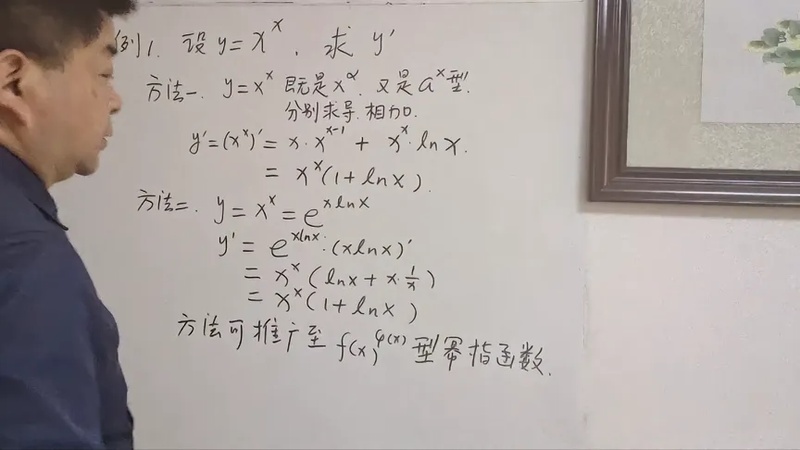 例1. 设 y = x^x, 求 y'
方法一. y = x^x 既是 x^α. 又是 a^x 型.
分别求导. 相加.
y' = (x^x)' = x · x^{x-1} + x^x · ln x.
= x^x (1 + ln x).
方法二. y = x^x = e^{x ln x}
y' = e^{x ln x} · (x ln x)'
= x^x (ln x + x · 1/x)
= x^x (1 + ln x)
方法可推广至 f(x)^{φ(x)} 型幂指函数.